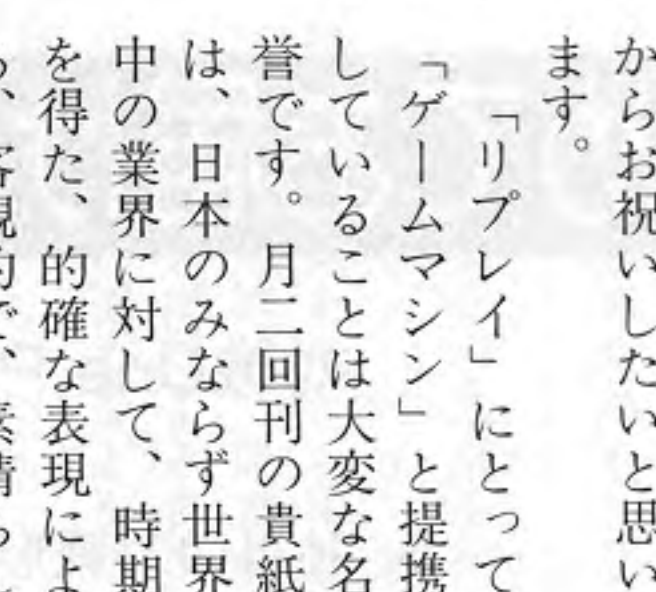 からお祝いしたいと思い
ます。
「リプレイ」にとって
「ゲームマシン」と提携
していることは大変な名
誉です。月二回刊の貴紙
は、日本のみならず世界
中の業界に対して、時期
を得た、的確な表現によ
、客観的で、素晴らし